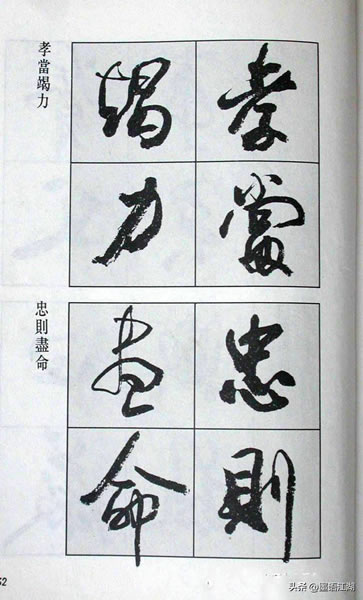 孝當
竭力
孝當竭力
忠則
盡命
忠則盡命
52
头条 @墨语江湖